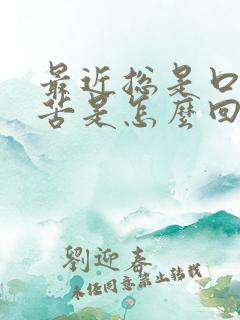 最近总是口
苦是怎麼回
劉迎春
未经同意禁止转载